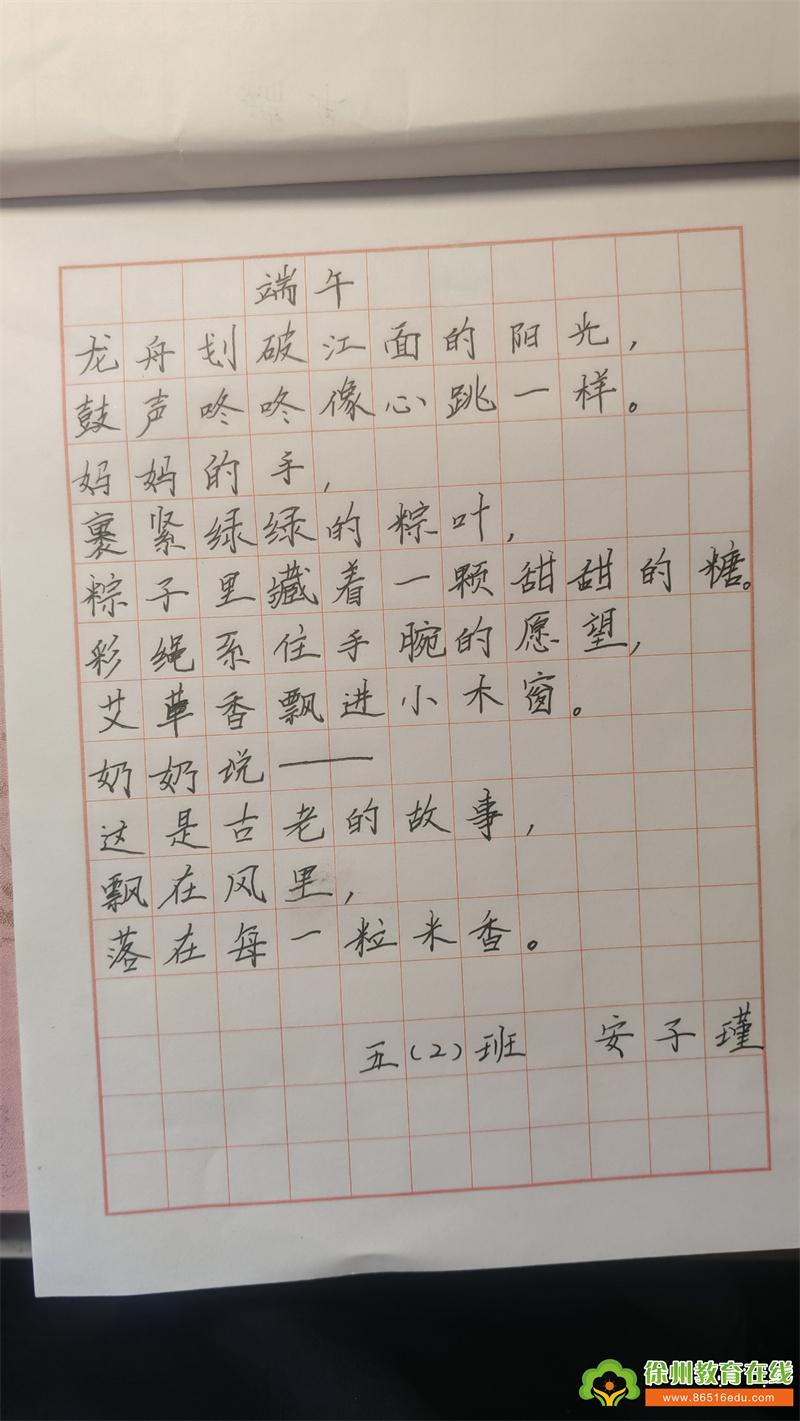 端午
龙舟划破江面的阳光，
鼓声咚咚像心跳一样。
妈妈的手，
裹紧绿绿的粽叶，
粽子里藏着一颗甜甜的糖。
彩绳系住手腕的愿望，
艾草香飘进小木窗。
奶奶说——
这是古老的故事，
飘在风里，
落在每一粒米香。
五(2)班 安子瑾
徐州教育在线
www.86516edu.com